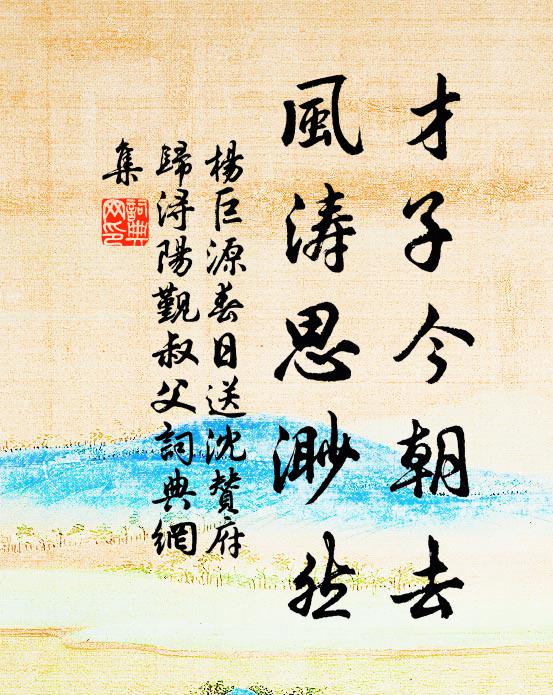 才子今朝去
風涛思渺然
楊巨源春日送沈贊府
歸浔陽觐叔父詞典網
集
詞典
网印